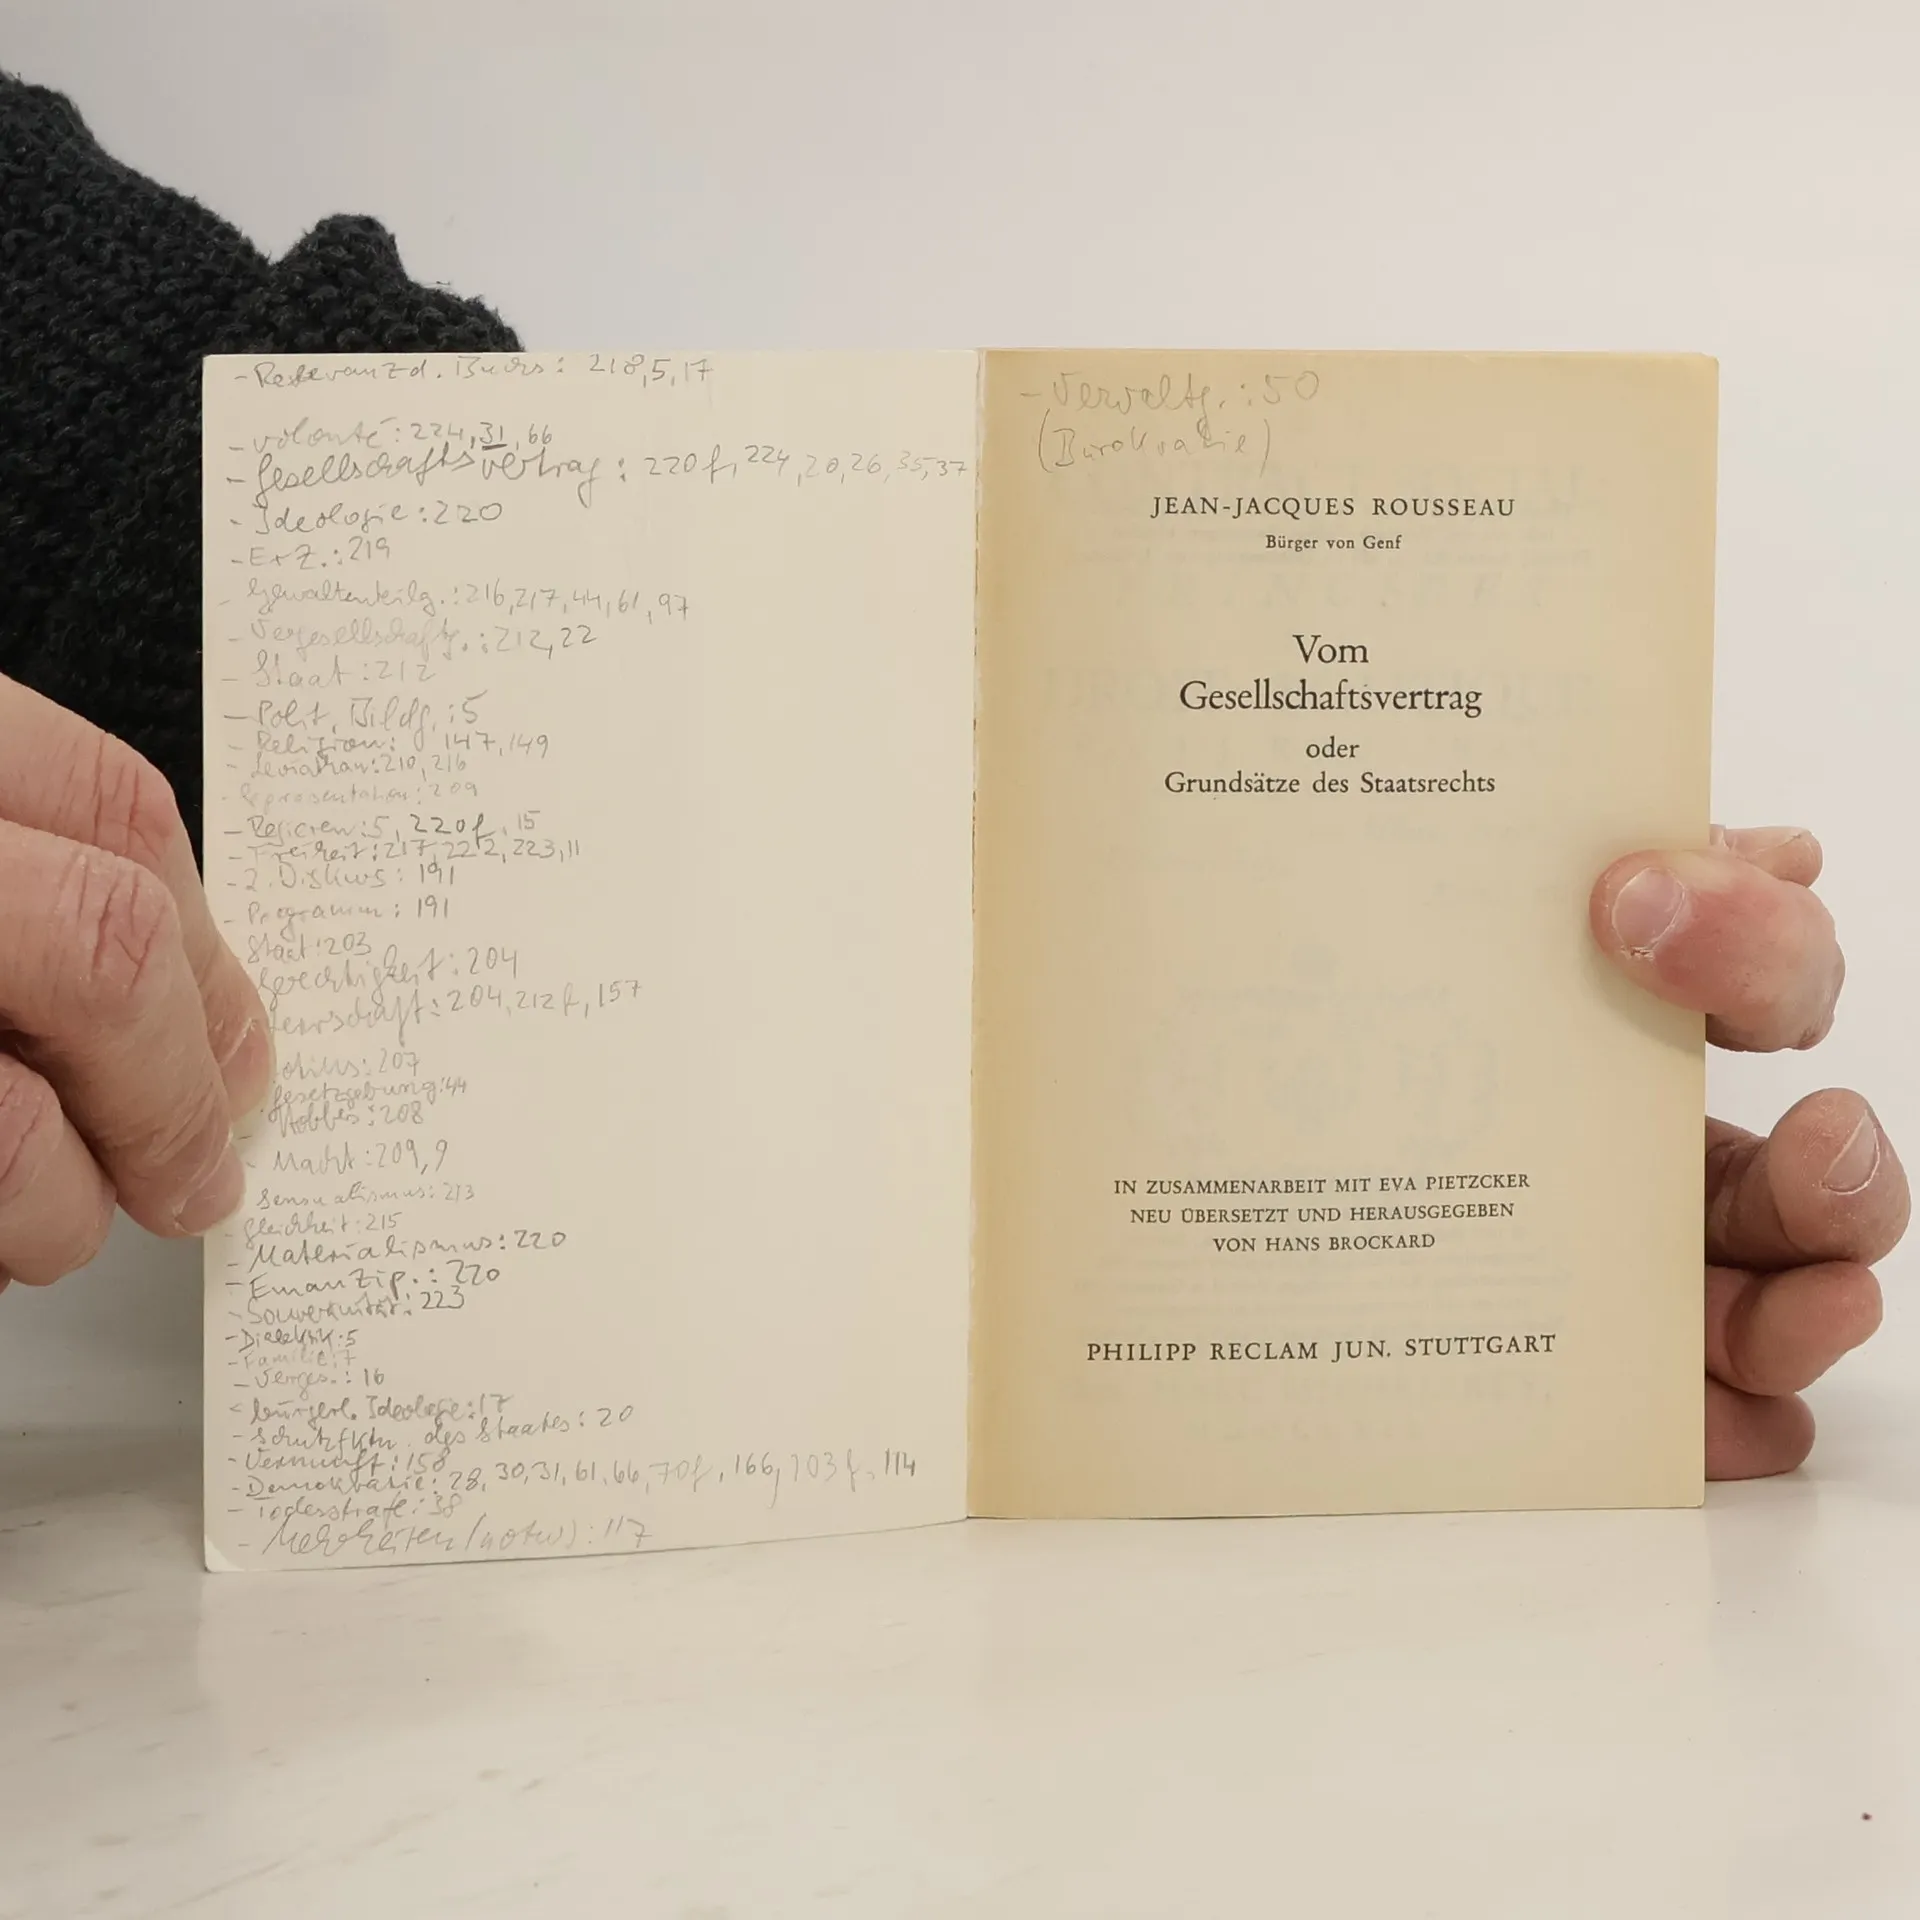 - Relevanz d. Buches: 218, 5, 17
- volonté: 224, 31, 66
- Gesellschaftsvertrag: 220f, 224, 20, 26, 35, 37
- Ideologie: 220
- Erz.: 219
- Gewaltenteilg.: 216, 217, 44, 61, 97
- Vergesellschaftg.: 212, 22
- Staat: 212
- Polit. Bildg.: 5
- Religion: 147, 149
- Leviathan: 210, 216
- Repräsentation: 209
- Regieren: 5, 220f, 15
- Freiheit: 217, 222, 223, 11
- 2. Diskurs: 191
- Programm: 191
Staat: 203
Gerechtigkeit: 204
errschaft: 204, 212f, 157
: 207
Gesetzgebung: 44
- Hobbes: 208
- Macht: 209, 9
Sensualismus: 213
- Gleichheit: 215
- Materialismus: 220
- Emanzip.: 220
- Souveränität: 223
- Dialektik: 5
- Familie: 7
- Verges.: 16
- bürgerl. Ideologie: 17
- Schutzfktn. des Staates: 20
- Vernunft: 158
- Demokratie: 28, 30, 31, 61, 66, 70f, 166, 103f, 114
- Todesstrafe: 38
- Mehrheiten (notw): 117
- Verwaltg.: 50
(Bürokratie)
JEAN-JACQUES ROUSSEAU
Bürger von Genf
Vom
Gesellschaftsvertrag
oder
Grundsätze des Staatsrechts
IN ZUSAMMENARBEIT MIT EVA PIETZCKER
NEU ÜBERSETZT UND HERAUSGEGEBEN
VON HANS BROCKARD
PHILIPP RECLAM JUN. STUTTGART